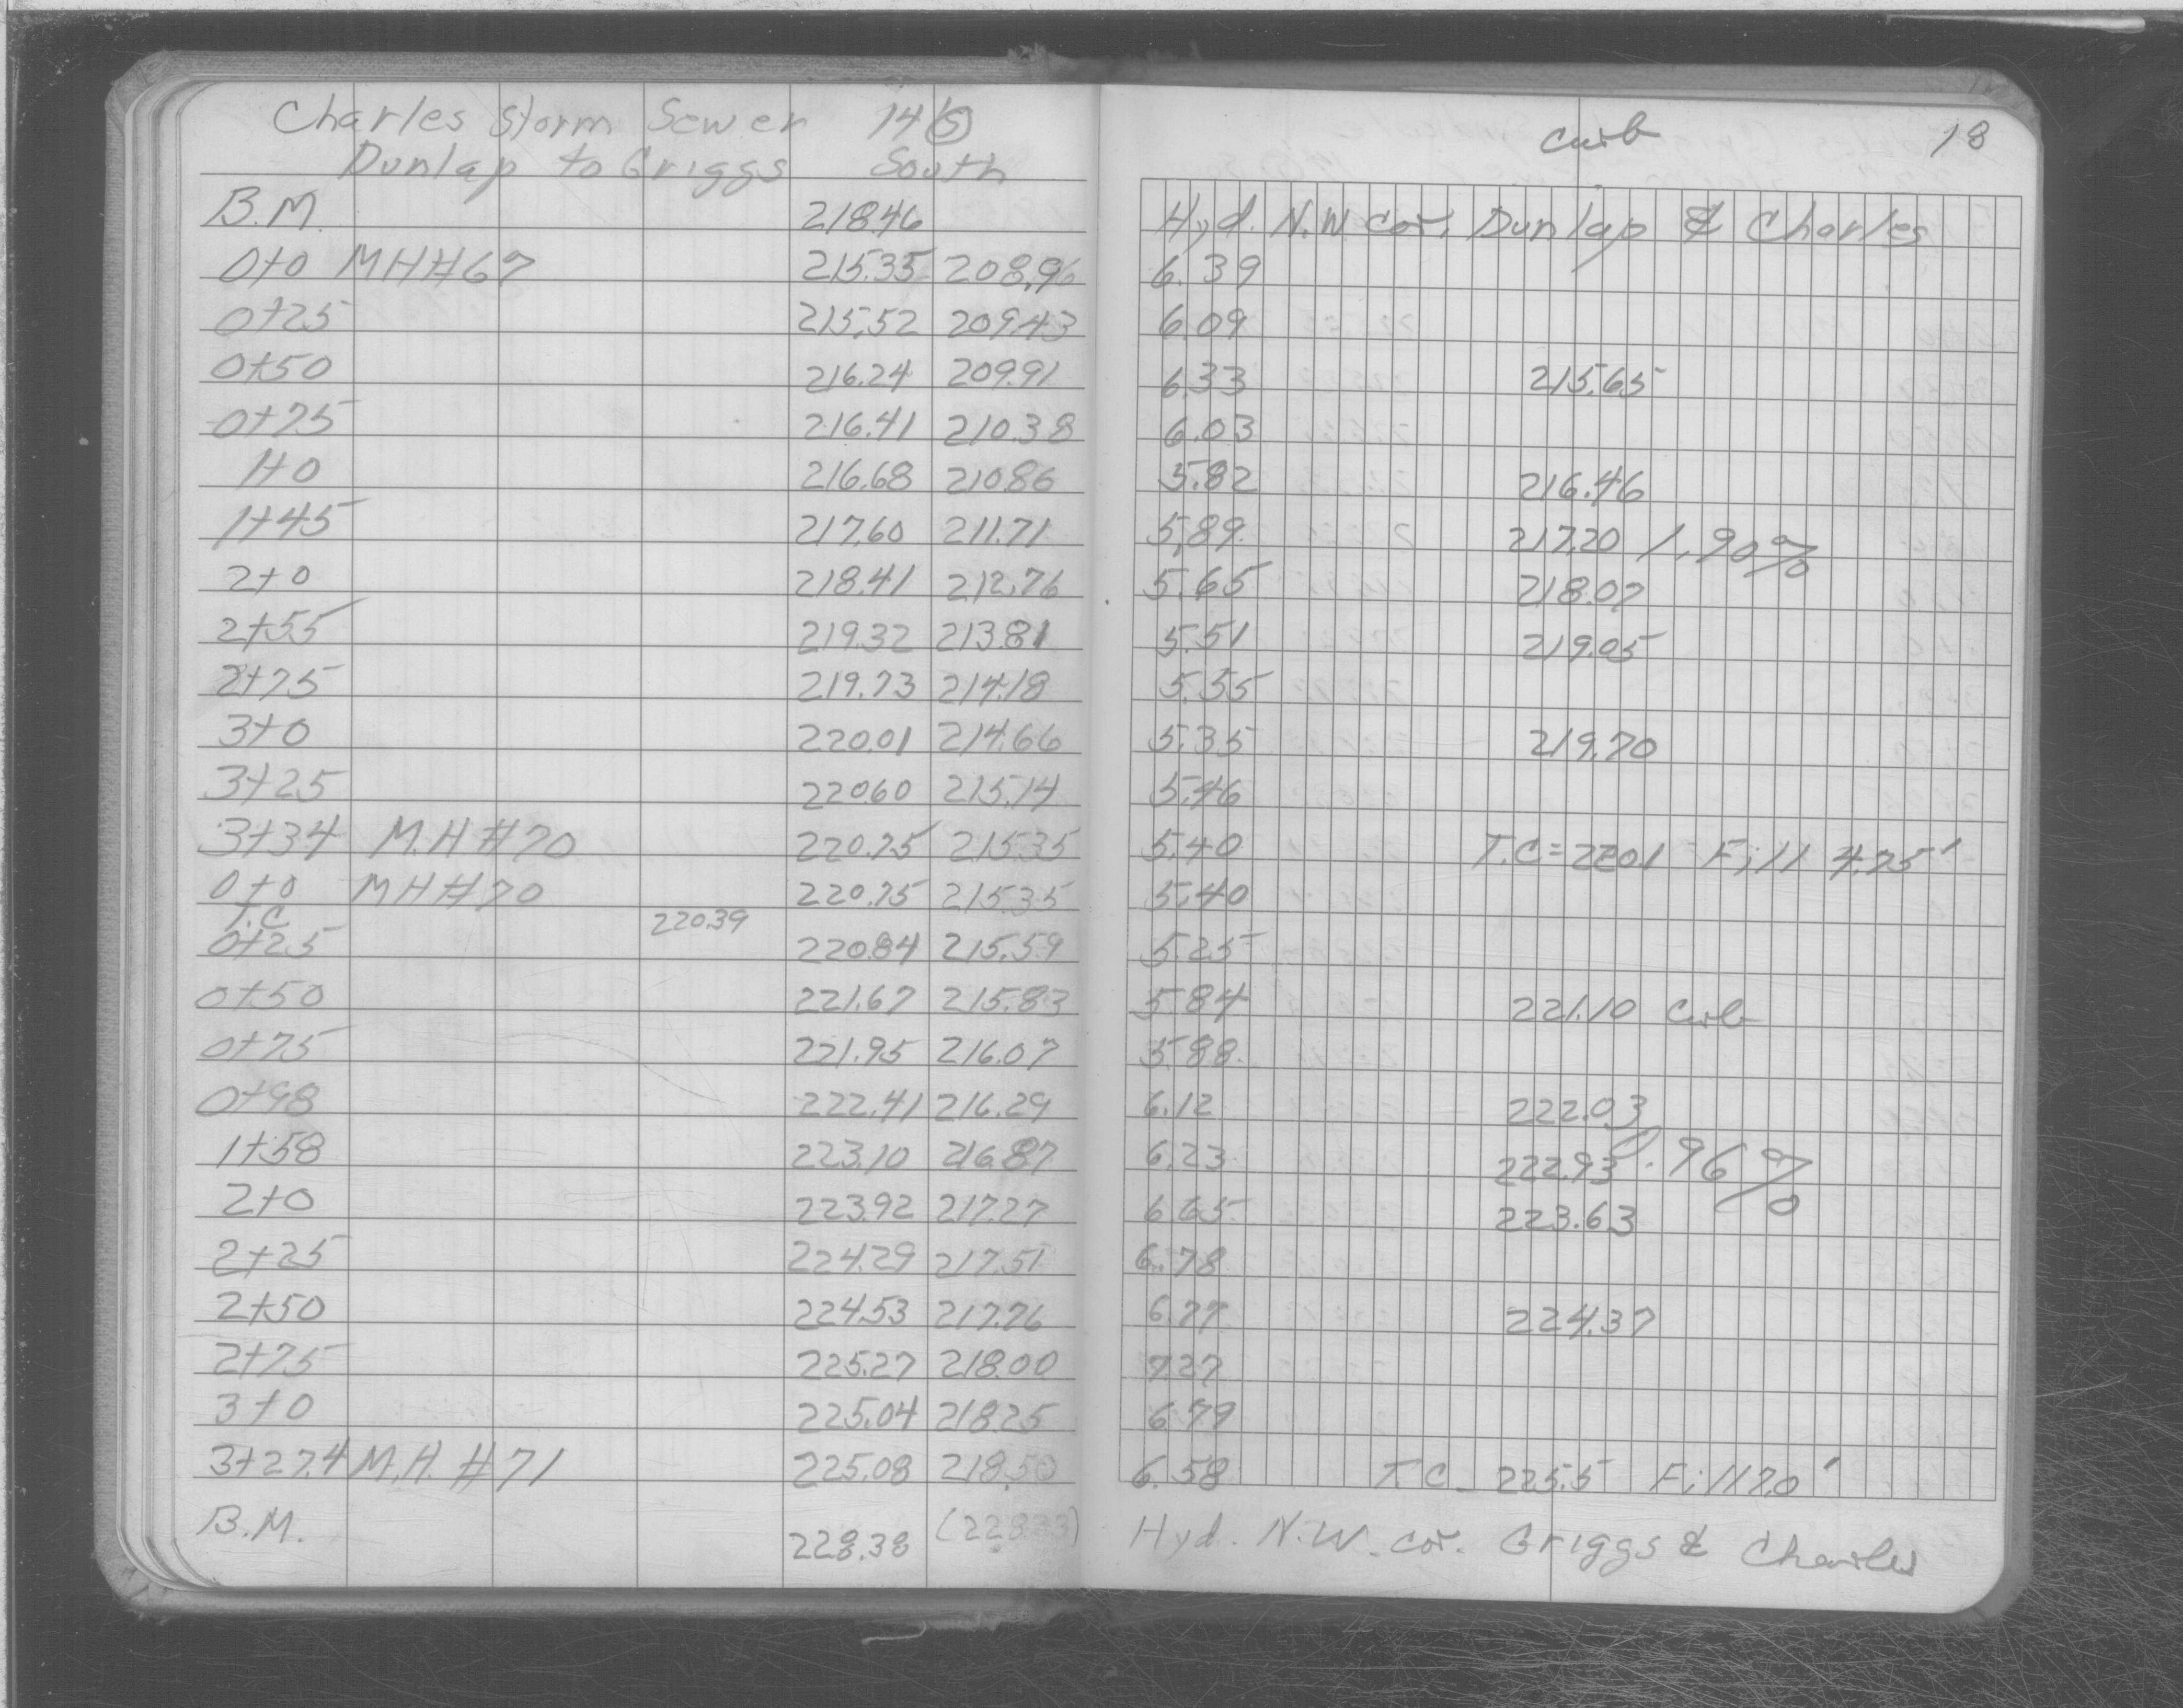 Charles Storm Sewer 14 (5)
Dunlap to Griggs South
curb 18
B.M. 218.46 Hyd. N.W. cor. Dunlap & Charles
0+0 MH#67 215.35 208.96 6.39
0+25 215.52 209.43 6.09
0+50 216.24 209.91 6.33 215.65
0+75 216.41 210.38 6.03
1+0 216.68 210.86 5.82 216.46
1+45 217.60 211.71 5.89 217.20 1.90%
2+0 218.41 212.76 5.65 218.07
2+55 219.32 213.81 5.51 219.05
2+75 219.73 214.18 5.55
3+0 220.01 214.66 5.35 219.70
3+25 220.60 215.14 5.46
3+34 M.H #70 220.75 215.35 5.40 T.C = 220.1 Fill 4.75'
0+0 MH#70 220.75 215.35 5.40
T.C 220.39
0+25 220.84 215.59 5.25
0+50 221.67 215.83 5.84 221.10 Curb
0+75 221.95 216.07 5.88
0+98 222.41 216.29 6.12 222.03
1+58 223.10 216.87 6.23 222.93 0.96%
2+0 223.92 217.27 6.65 223.63
2+25 224.29 217.51 6.78
2+50 224.53 217.76 6.77 224.37
2+75 225.27 218.00 7.27
3+0 225.04 218.25 6.79
3+27.4 M.H. #71 225.08 218.50 6.58 T.C_ 225.5 Fill 7.0'
B.M. 228.38 Hyd. N.W. cor. Griggs & Charles